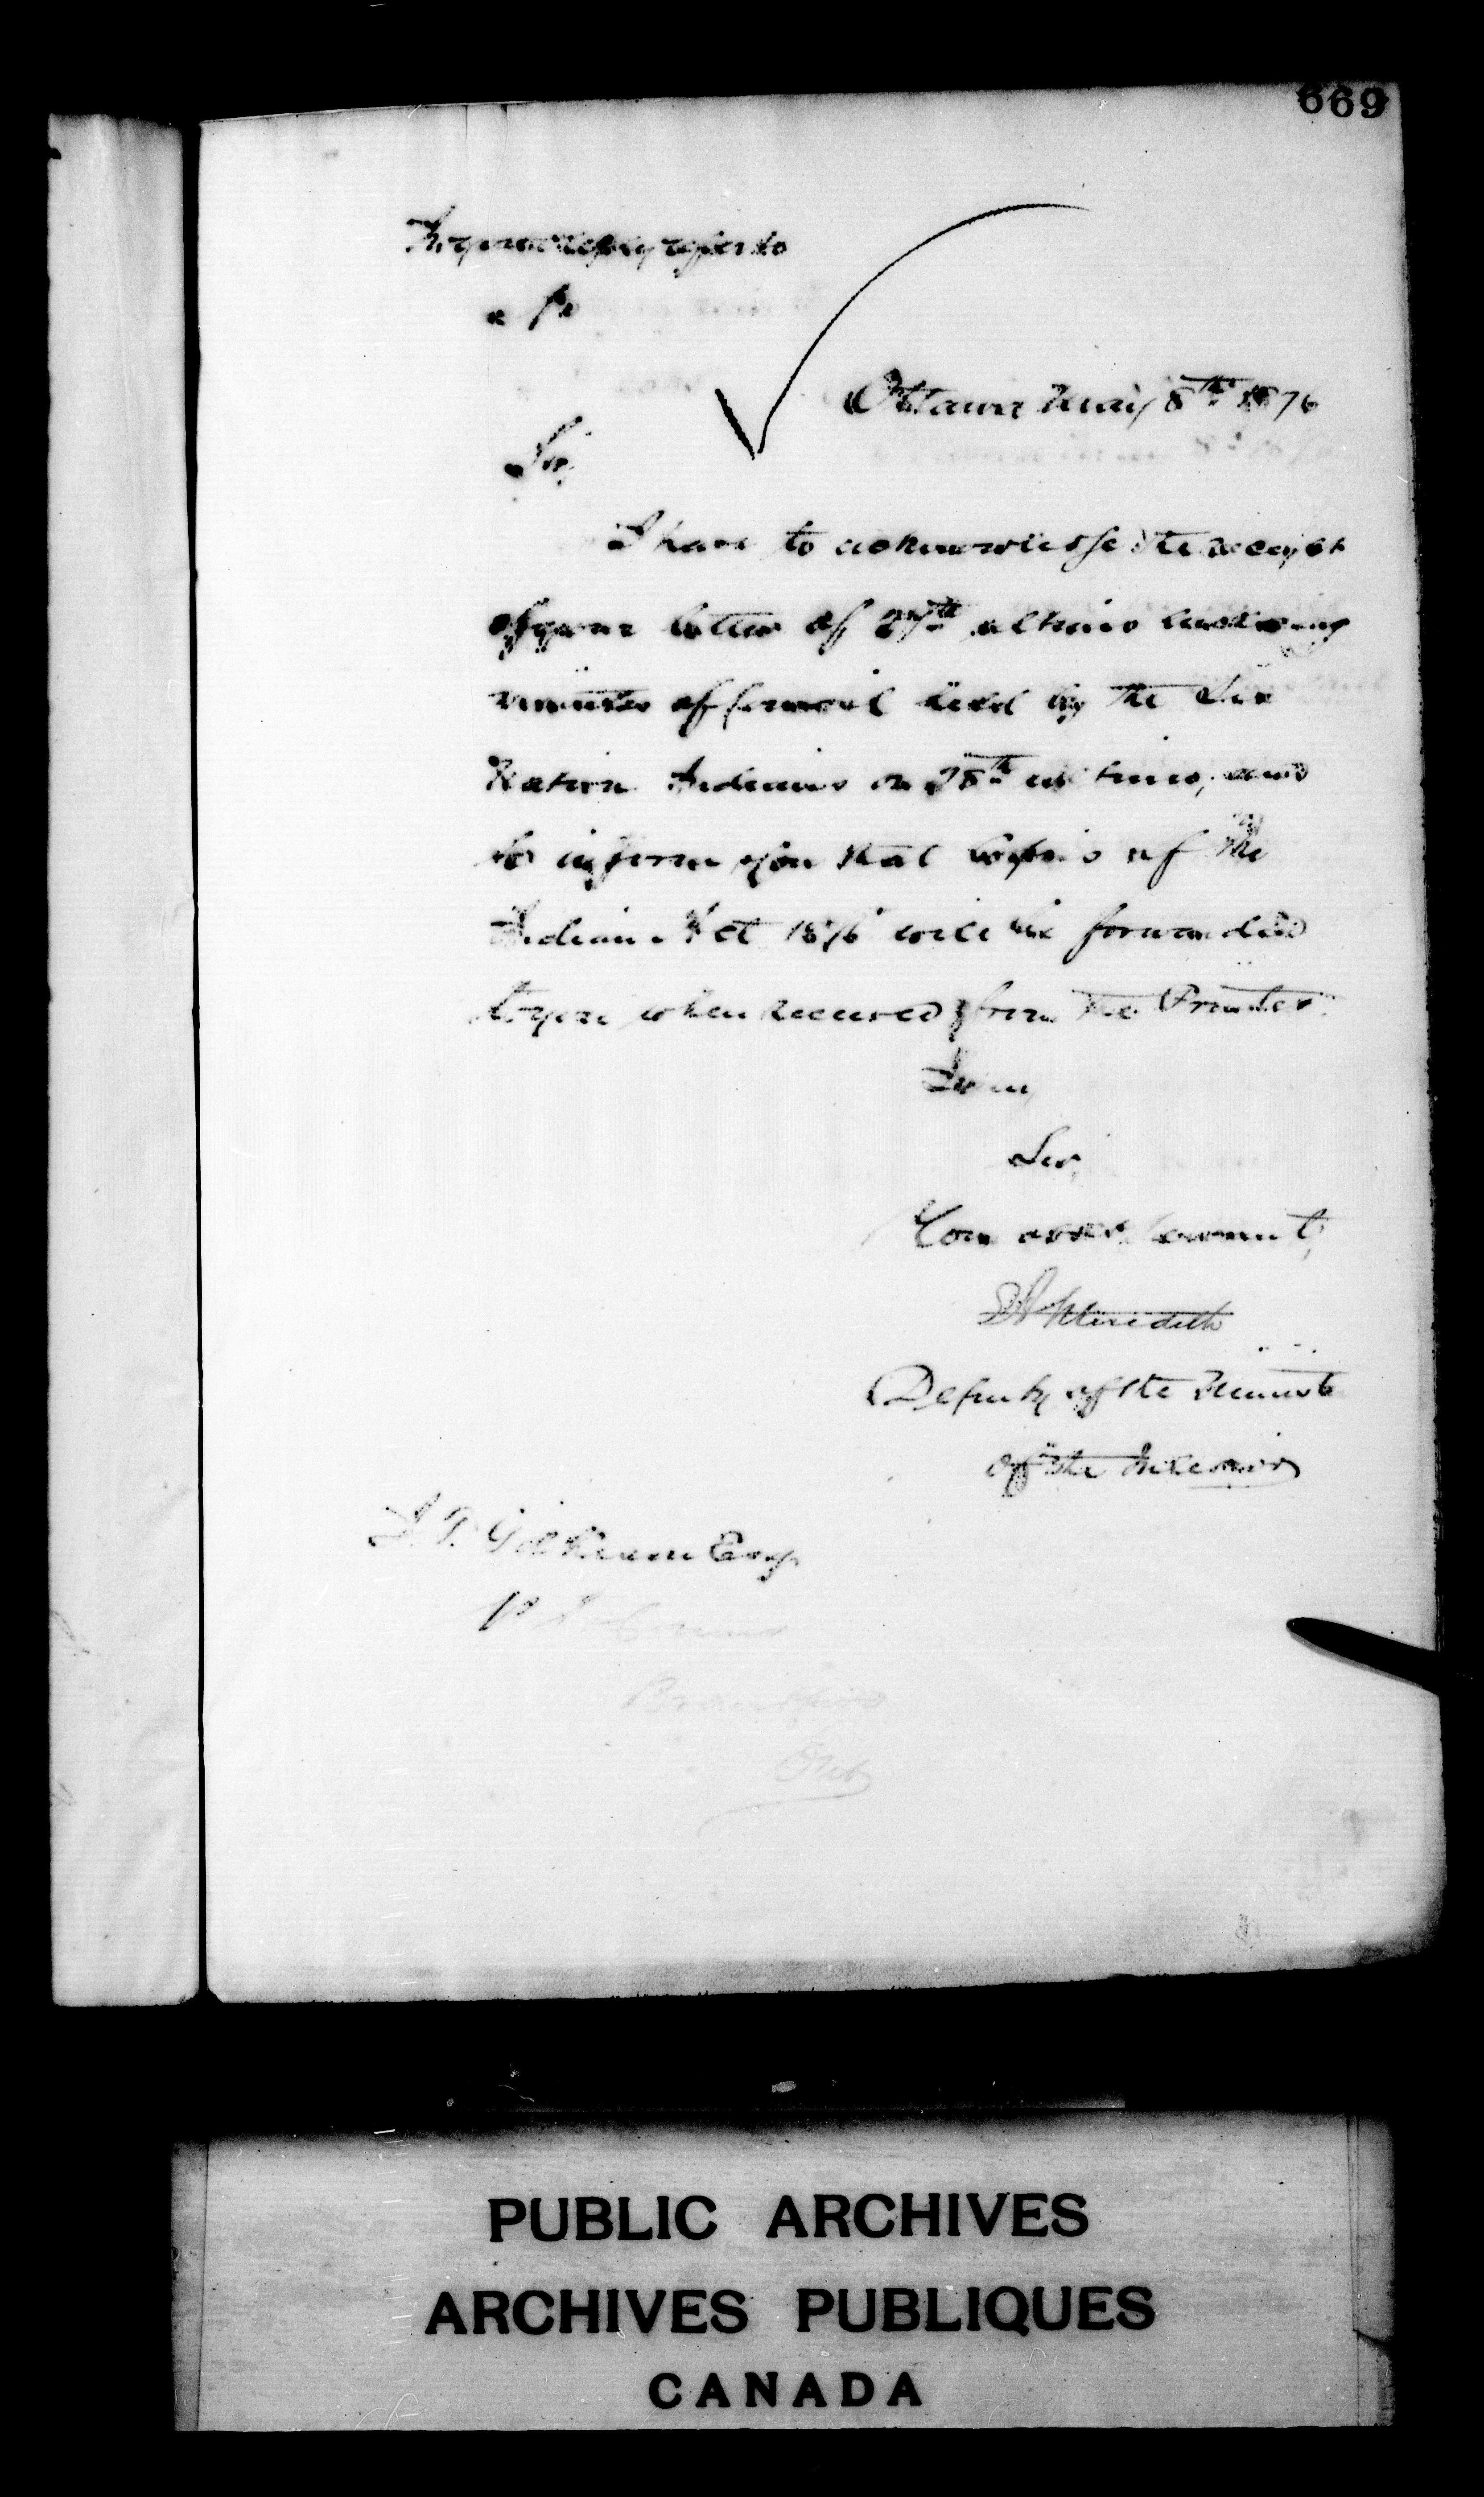 669
In your reply refer to
Ottawa May 8th 1876
Sir,
I have to acknowledge the receipt
of your letter of 27th ultimo enclosing
minutes of Council held by the Six
Nation Indians on 28th ultimo, and
to inform you that copies of the
Indian Act 1876 will be forwarded
to you when received from the Printer.
I am,
Sir,
Your obedt servant,
E A Meredith
Deputy of the Minist
of the Interior
J. T. Gilkison Esq
Brantford
Ont
PUBLIC ARCHIVES
ARCHIVES PUBLIQUES
CANADA